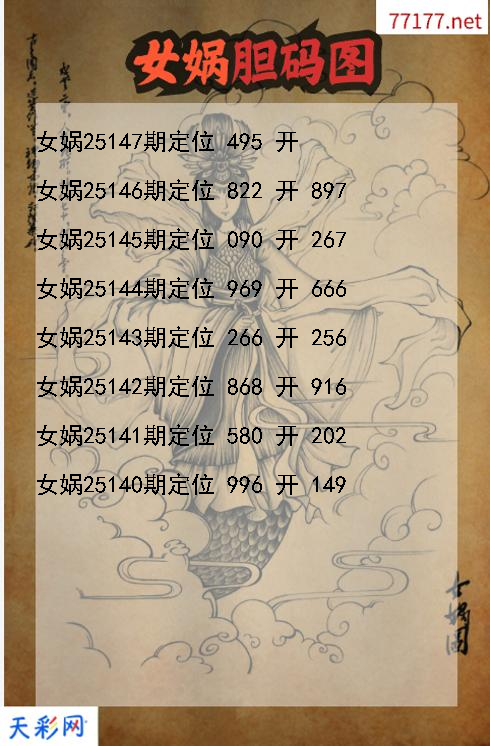 77177.net
女娲胆码图
女娲25147期定位 495 开
女娲25146期定位 822 开 897
女娲25145期定位 090 开 267
女娲25144期定位 969 开 666
女娲25143期定位 266 开 256
女娲25142期定位 868 开 916
女娲25141期定位 580 开 202
女娲25140期定位 996 开 149
女娲图
天彩网